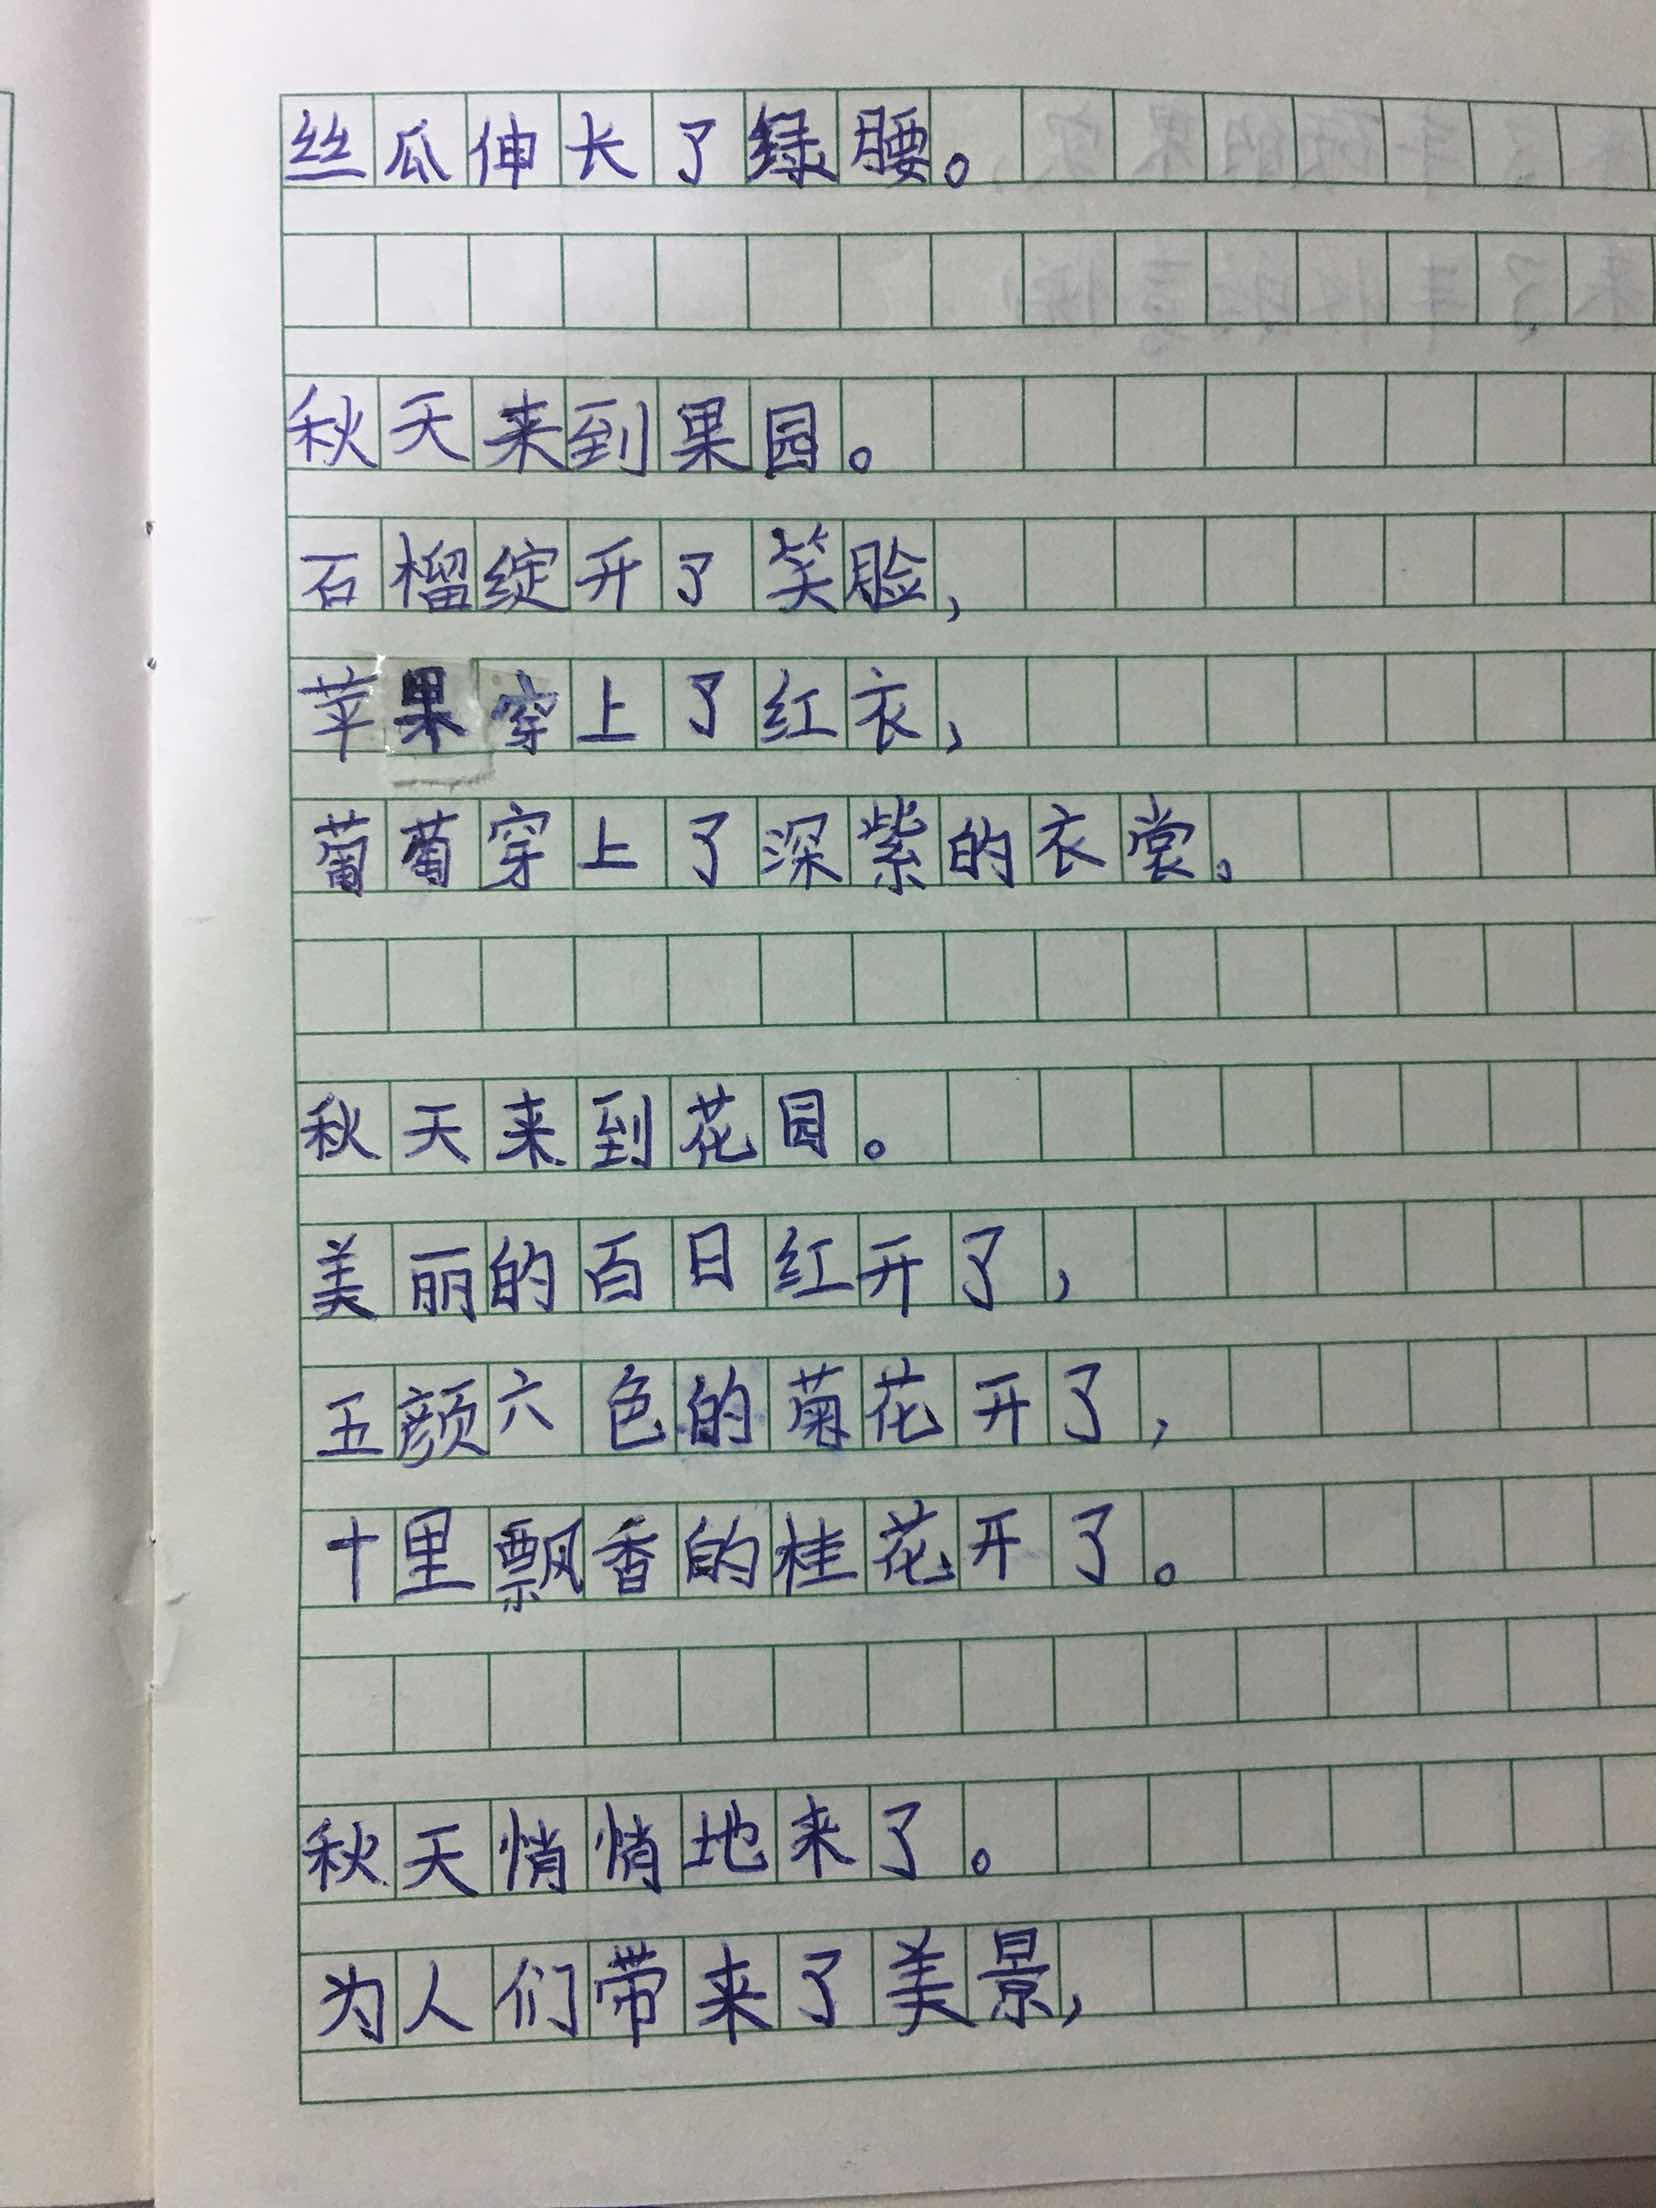 丝瓜伸长了绿腰。
秋天来到果园。
石榴绽开了笑脸，
苹果穿上了红衣，
葡萄穿上了深紫的衣裳。
秋天来到花园。
美丽的百日红开了，
五颜六色的菊花开了，
十里飘香的桂花开了。
秋天悄悄地来了。
为人们带来了美景，